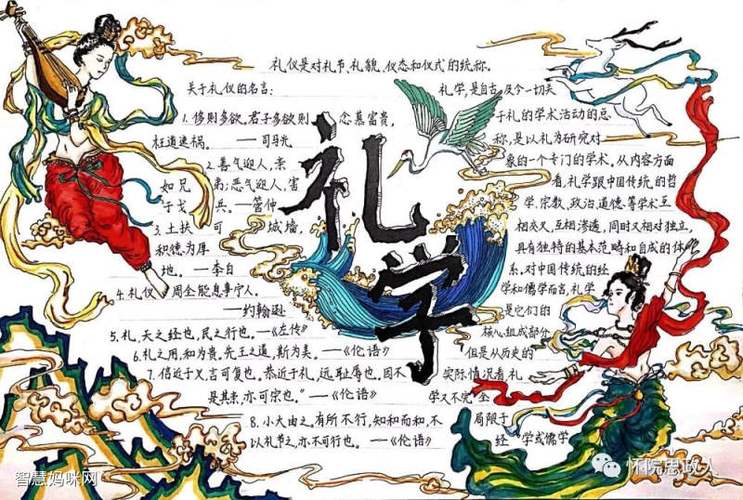 礼仪是对礼节、礼貌、仪态和仪式的统称。
关于礼仪的名言:
1. 侈则多欲。君子多欲则 念慕富贵,
枉道速祸。——司马光
2. 善气迎人,亲
如兄 弟;恶气迎人,害
于戈 兵。——管仲
3. 土扶 可 城墙,
积德为厚
地。——李白
4. 礼仪 周全能息事宁人。
——约翰逊
5. 礼,天之经也,民之行也。——《左传》
6. 礼之用,和为贵。先王之道,斯为美。——《伦语》
7. 信近于义,言可复也。恭近于礼,远耻辱也。因不
是其亲,亦可宗也"——《伦语》
8. 小大由之,有所不行,知和而和,不
以礼节之,亦不可行也。——《伦语》
礼学
礼学,是自古及今一切关
于礼的学术活动的总
称,是以礼为研究对
象的一个专门的学术。从内容方面
看,礼学跟中国传统的哲
学、宗教、政治、道德等学术互
相交叉,互相渗透,同时又相对独立,
具有独特的基本范畴和自成的体
系。对中国传统的经
学和儒学而言,礼学
是它们的
核心组成部分
但是从历史的
实际情况看,礼
学又不完全
局限于
经 学或儒学
智慧妈咪网
怀院思政人